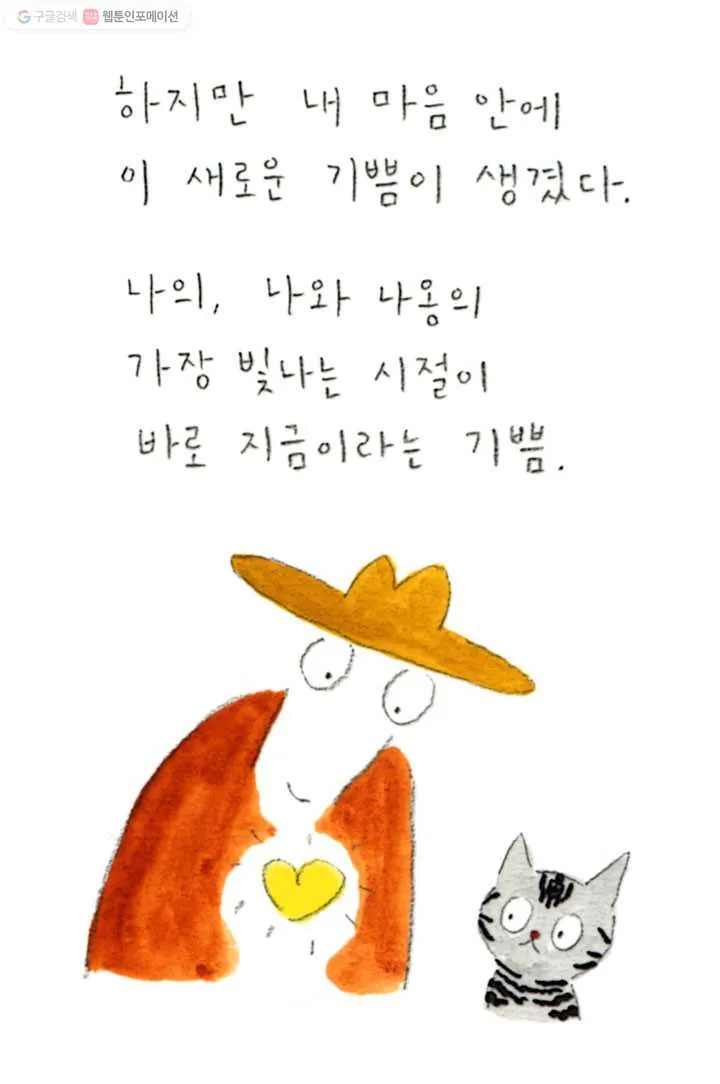 구글검색 웹툰인포메이션
하지만 내 마음 안에
이 새로운 기쁨이 생겼다.
나의, 나와 나옹의
가장 빛나는 시절이
바로 지금이라는 기쁨.